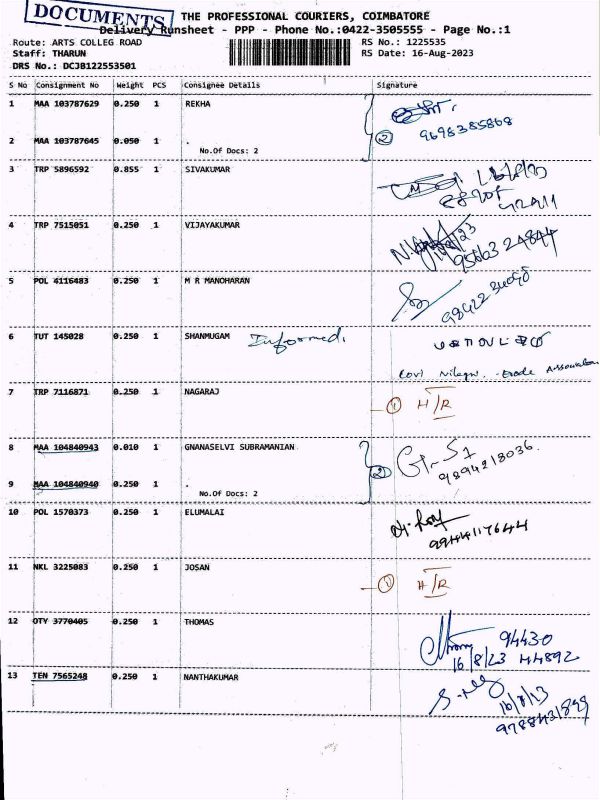 DOCUMENTS
THE PROFESSIONAL COURIERS, COIMBATORE
Delivery Runsheet - PPP - Phone No.:0422-3505555 - Page No.:1
Route: ARTS COLLEG ROAD
RS No.: 1225535
Staff: THARUN
RS Date: 16-Aug-2023
DRS No.: DCJB122553501
S No Consignment No Weight PCS Consignee Details Signature
1 MAA 103787629 0.250 1 REKHA
2 MAA 103787645 0.050 1 .
No.Of Docs: 2
② 9698385868
3 TRP 5896592 0.855 1 SIVAKUMAR
4 TRP 7515051 0.250 1 VIJAYAKUMAR
95663 24844
5 POL 4116483 0.250 1 M R MANOHARAN
98422 34098
6 TUT 145028 0.250 1 SHANMUGAM Informed.
Covi Nilagri. Erode Association
7 TRP 7116871 0.250 1 NAGARAJ
① H/R
8 MAA 104840943 0.010 1 GNANASELVI SUBRAMANIAN
9 MAA 104840940 0.250 1 .
No.Of Docs: 2
② 9894218036
10 POL 1570373 0.250 1 ELUMALAI
9944117644
11 NKL 3225083 0.250 1 JOSAN
① H/R
12 OTY 3770405 0.250 1 THOMAS
94430
16/8/23 44892
13 TEN 7565248 0.250 1 NANTHAKUMAR
16/8/23
9788421899